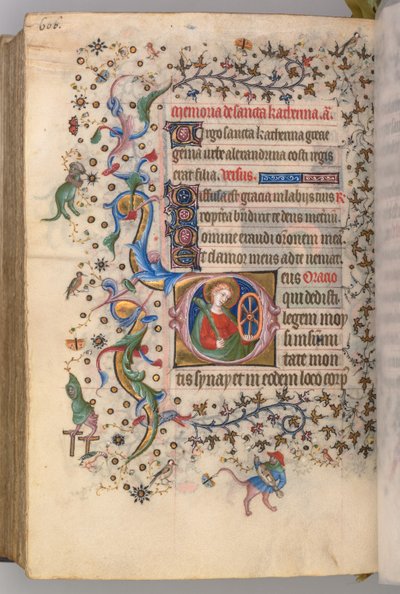 606.
Memoria de sancta katherina. a͞.
Virgo sancta katherina grecie
gemma urbe alexandrina costi regis
erat filia. Versus.
Diffusa est gracia in labijs tuis R
Propterea bn͞dixit te deus in etnū.
Domine exaudi or͞onem meā
Et clamor meus ad te veniat.
Deus Oracio
qui dedisti
legem moy
si in sum͞i
tate mon
tis synay et in eodem loco corp